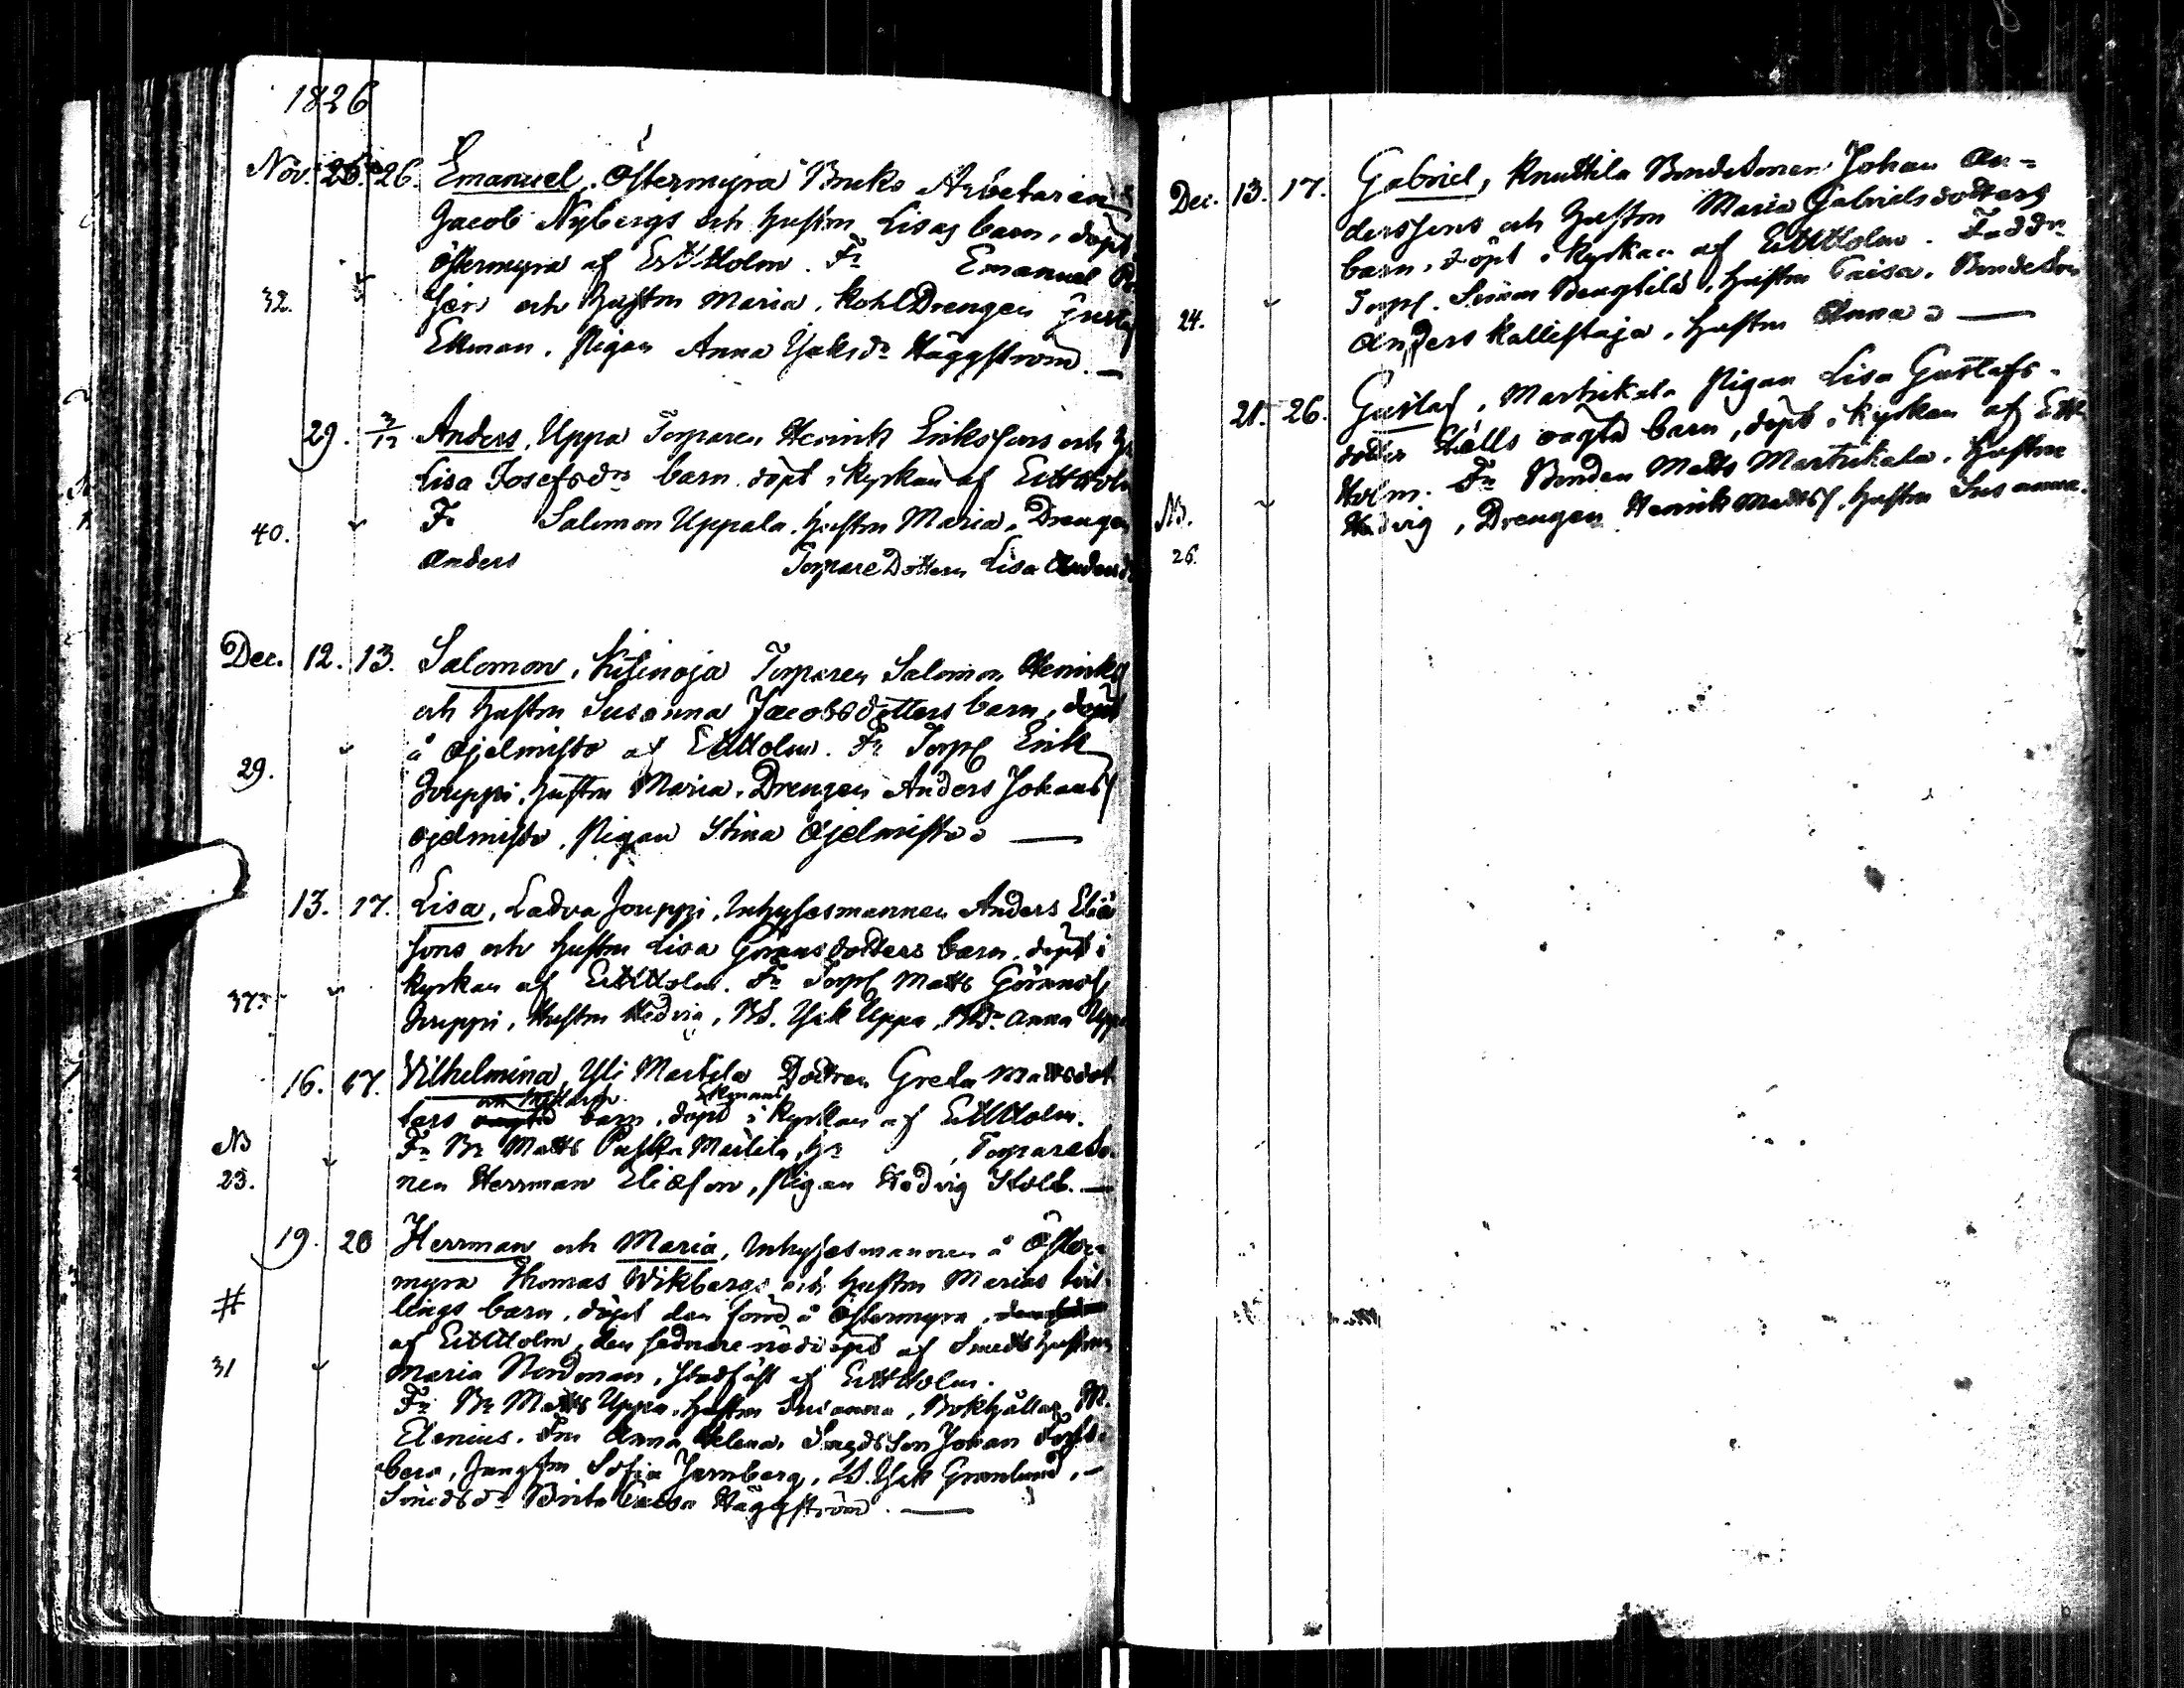 1826
Nov. 26. 26. Emanuel, Östermyra Bruks Arbetaren
Jacob Nybergs och hustrun Lisas barn, döpt
Östermyra af EttHolm. Fr Emanuel
32. och hustrun Maria, KohlDrengen Gustaf
Ekman, Pigan Anna Isaksdr Häggström. —
29. 3/12 Anders, Uppa Torparen Henrik Erikssons och
Lisa Josefsdrs barn, döpt i kyrkan af EttHolm
40. Fr Salomon Uppala, hustrun Maria, Drengen
Anders TorpareDottern Lisa
Dec. 12. 13. Salomon, Torparen Salomon Henriks
och hustrun Susanna Jacobsdotters barn, döpt
å Ojelmisto af EttHolm. Fr Torp Erik
29. Jouppi, hustrun Maria, Drengen Anders Johans
Ojelmisto, Pigan Stina Ojelmisto —
13. 17. Lisa, Ladva Jouppi, Inhysesmannen Anders Elia
sons och hustrun Lisa Göransdotters barn, döpt i
37. kyrkan af EttHolm. Fr Torp Matts Görans
Jouppi, Hustrun Hedvig, BS. Isak Uppa, BDr Anna
16. 17. Vilhelmina, Yli Martila Dottren Greta Mattsdot
ters barn, döpt i kyrkan af EttHolm.
NB Fr Br Matts Martila, hr , Torpareso
23. nen Herrman Eliæson, Pigan Hedvig Holb. —
19. 20 Herrman och Maria, Inhysesmannen å Öster
myra Thomas Wikbergs och hustrun Marias tvil
# lings barn, döpt den förra å Östermyra,
af EttHolm, den sednare nöddöpt af Smeds hustrun
31 Maria Nordman, stadfäst af EttHolm.
Fr Br Matts Uppa, hustrun Susanna, Bokhållar M.
Elenius. Fru Anna Helena, Smedsson Johan Fors
berg, Jungfrun Sofia Jernberg, Isak Grönlund, —
Smedsdr Brita Caisa Häggström. —
Dec. 13. 17. Gabriel, Knuttila BondeSonen Johan An-
derssons och hustrun Maria Gabrielsdotters
barn, döpt i kyrkan af EttHolm. Faddr
Torp. Simon Bengtila, hustrun Caisa, BondeSon
24. Anders Kallistaja, hustrun Anna —
21. 26. Gustaf, Martikala Pigan Lisa Gustafs-
dotter Hälls oägta barn, döpt i kyrkan af Ett
Holm. Fr Bonden Matts Martikala, hustrun
NB. Hedvig, Drengen Henrik Matts, hustrun Susanna.
26.